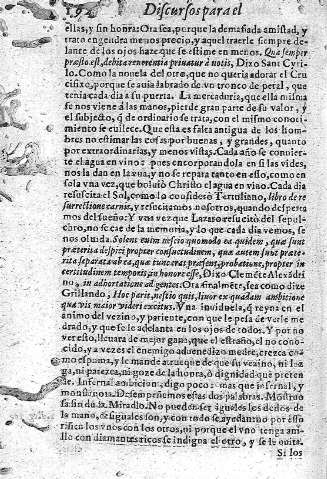 192 Discursos para el
ellas, y sin honra: Ora sea, porque la demasiada amistad, y
trato engendra menosprecio, y aquel traerle siempre de-
lante de los ojos haze que se estime en menos. Quæ semper
præsto est, debita reuerentia priuatur à notis, Dixo Sant Cyri-
lo. Como la nouela del otro, que no queria adorar el Cru
cifixo, porque se auia labrado de vn tronco de peral, que
tenia cada dia a su puerta. La mercaduria, que ella misma
se nos viene à las manos, pierde gran parte de su valor, y
el subjecto, q̃ de ordinario se trata, con el mismo conoci-
miento se enilece. Que esta es falta antigua de los hom-
bres no estimar las cosas por buenas, y grandes, quanto
por extraordinarias, y menos vistas. Cada año se conuier-
te el agua en vino: pues encorporandola en si las vides,
nos la dan en la vua, y no se repara tanto en esso, como en
sola vna vez, que boluio Christo el agua en vino. Cada dia
resuscita el Sol, como lo considerò Tertuliano, libro de re
surrectione carnis, y resuscitamos nosotros, quando desperta
mos del sueño: Y vna vez que Lazaro resucitò del sepul-
chro, no se cae de la memoria, y lo que cada dia vemos, se
nos oluida. Solent enim nescio quomodo ea quidem, quæ sunt
præterita despici propter consuetudinem, quæ autem sunt
separata
certitudinem temporis, in honore esse, Dixo Clemẽte Alexãdri
no, in adhortatione ad gentes. Ora finalmẽte, sea como dize
Grillando, Hoc parit, nescio quis, liuor ex quadam ambitione
qua vis maior videri excitus. Vna inuiduela, q̃ reyna en el
animo del vezino, y pariente, con que le pesa de verle me
drado, y que se le adelanta en los ojos de todos. Y por no
ver esto, lleuara de mejor gana, que el estraño, el no cono-
cido, ya vezes el enemigo aduenedizo medre, crezca co-
mo espuma, y le mande a trueque de que su vezino, ni lo
ga, ni parezca, ni goze de la honra, ò dignidad que preten
de. Infernal ambicion, digo poco: mas que infernal, y
monstruosa. Desempeñemos estas dos palabras. Monstruo
sa sin duda. Miradlo. No pueden ser yguales los dedos de
la mano, desiguales son, y con todo se ayudan: no por esso
rifan los vnos con los otros, ni porque el vno tenga ani-
llo con diamantes ricos se indigna el otro, y se le quita.
Si los